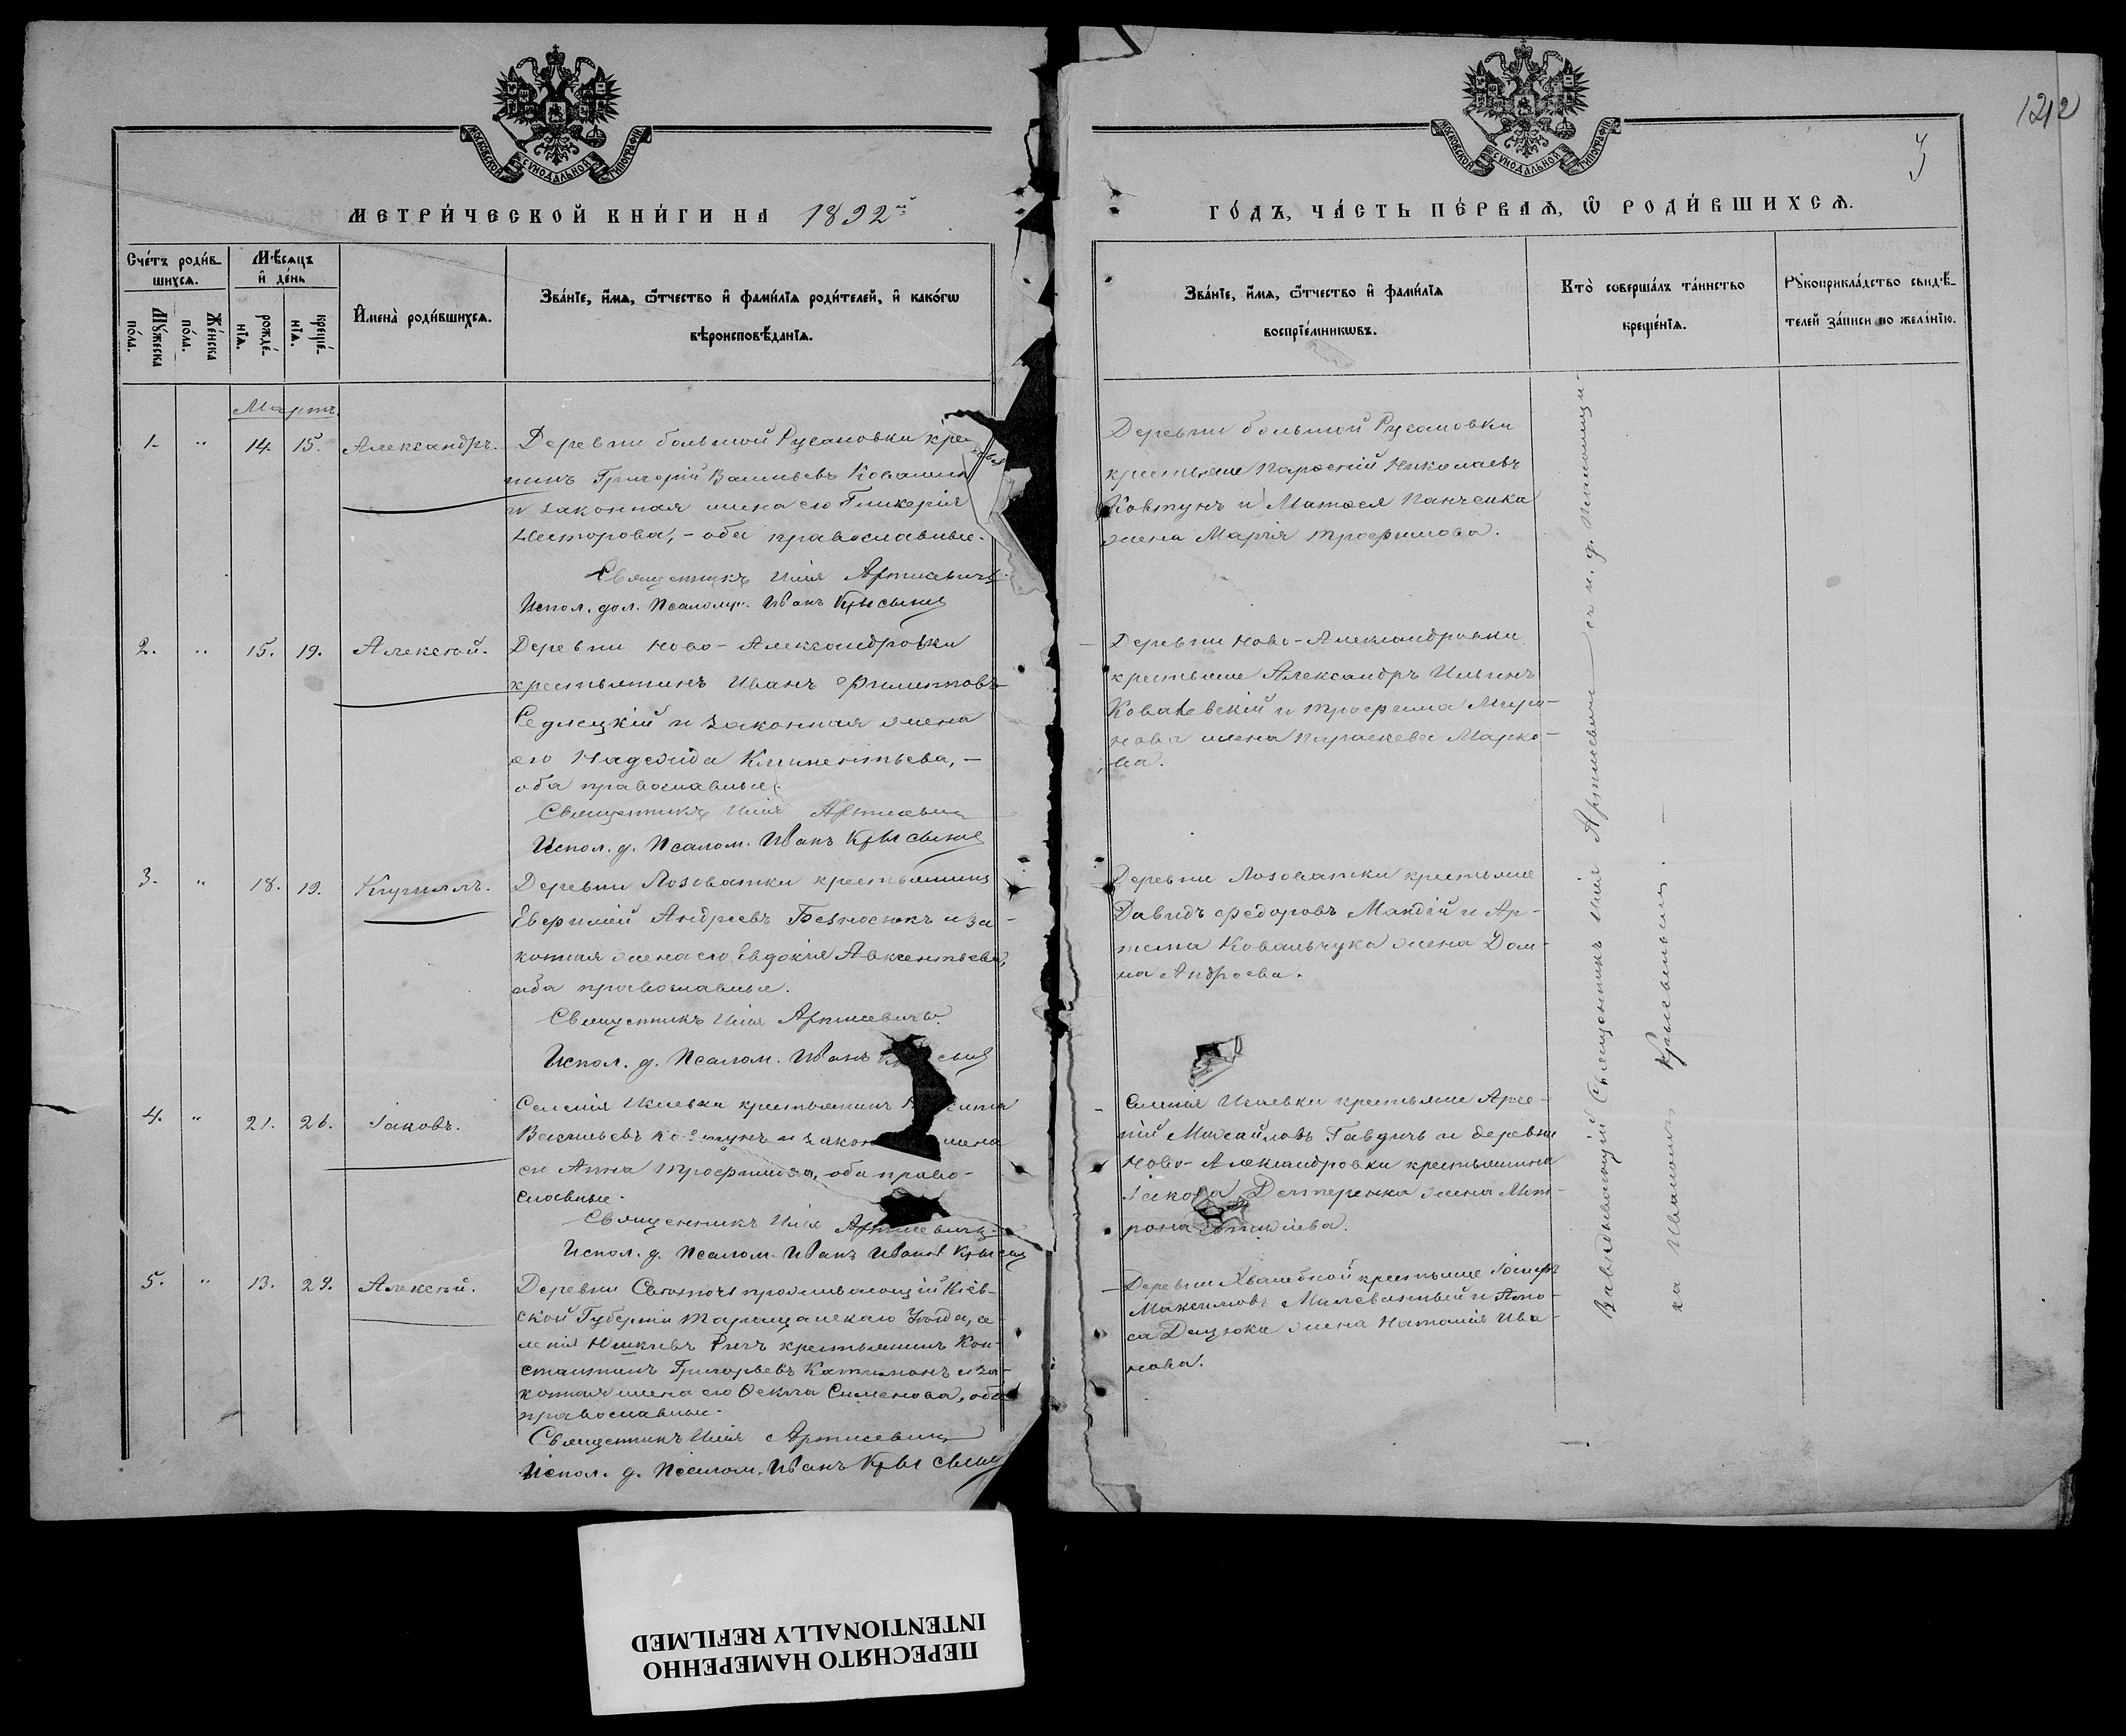 1212
3
МОСКОВСКОЙ СѴНОДАЛЬНОЙ ТИПОГРАФІИ
МОСКОВСКОЙ СѴНОДАЛЬНОЙ ТИПОГРАФІИ
МЕТРИ́ЧЕСКОЙ КНИ́ГИ НА 1892й
ГО́ДЪ, ЧА́СТЬ ПЕ́РВАѦ, Ѽ РОДИ́ВШИХСѦ.
Сче́тъ роди́в-
шихсѧ.
Мꙋ́жеска по́ла.
Же́нска по́ла.
Мѣ́сѧцъ
и҆ де́нь
рожде́-
нїѧ.
креще́-
нїѧ.
И҆мена̀ роди́вшихсѧ.
Зва́нїе, и҆́мѧ, ѻ҆́тчество и҆ фами́лїѧ роди́телей, и҆ како́гѡ
вѣроисповѣ́данїѧ.
Зва́нїе, и҆́мѧ, ѻ҆́тчество и҆ фами́лїѧ
воспрїе́мникѡвъ.
Кто̀ соверша́лъ та́инство
креще́нїѧ.
Рꙋкоприкла́дство свидѣ́-
телей за́писи по жела́нїю.
Мартъ.
1. " 14. 15. Александръ.
Деревни большой Русановки кре
нинъ Григорій Васильевъ
и законная жена его Гликерія
Несторова, - оба православные.
Священникъ Илія Артисевичъ
Испол. дол. Псаломщ. Иванъ
Деревни большой Русановки
крестьяне Парѳеній Николаевъ
Ковтунъ и Матѳея Панченка
жена Марія Трофимова.
2. " 15. 19. Алексѣй.
Деревни Ново-Александровки
крестьянинъ Иванъ Филипповъ
Седлецкій и законная жена
его Надежда Климентьева, -
оба православные.
Священникъ Илія Артисевичъ
Испол. д. Псалом. Иванъ
Деревни Ново-Александровки
крестьяне Александръ Ильинъ
Ковалевскій и Трофима Миро-
нова жена Параскева Марко-
ва.
3. " 18. 19. Кириллъ.
Деревни Лозоватки крестьянинъ
Евфимій Андреевъ Безносюкъ и за-
конная жена его Евдокія Авксентьева,
оба православные.
Священникъ Илія Артисевичъ.
Испол. д. Псалом. Иванъ
Деревни Лозоватки крестьяне
Давидъ Федоровъ Макдій и Ар-
тема Ковальчука жена Дом-
на Андреева.
4. " 21. 26. Іаковъ.
Селенія крестьянинъ
Васильевъ Ковтунъ и закон жена
его Анна Трофимова, оба право-
славные.
Священникъ Илія Артисевичъ.
Испол. д. Псалом. Иванъ Иванов
Селенія крестьяне Арсе-
ній Михайловъ Гавдичъ и деревни
Ново-Александровки крестьянина
Іакова жена Мат-
рона
5. " 13. 29. Алексѣй.
Деревни проживающій Кіев-
ской Губерніи Таращанскаго Уѣзда, се-
ленія крестьянинъ Кон-
стантинъ Григорьевъ и за-
конная жена его Ѳекла Сименова, оба
православные.
Священникъ Илія Артисевичъ
Испол. д. Псалом. Иванъ
Деревни Хвалебной крестьяне Іосифъ
Максимовъ и Амо-
са Дацюка жена Наталія Ива-
нова.
Священникъ Илія Артисевичъ съ и. д. Псаломщи-
ка Иваномъ
ПЕРЕСНЯТО НАМЕРЕННО
INTENTIONALLY REFILMED